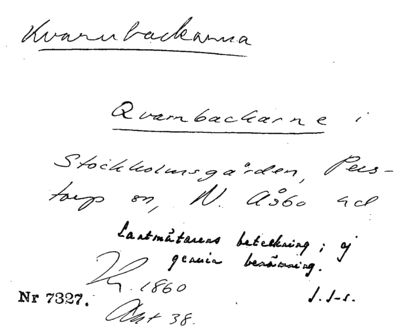 Kvarnbackarna
Qvarnbackarne i
Stockholmsgården, Pers-
torp sn, N. Åsbo hd
Lantmätarens beteckning; ej
genuin benämning.
1860
Nr 7327.
Akt 38.
J. J-s.